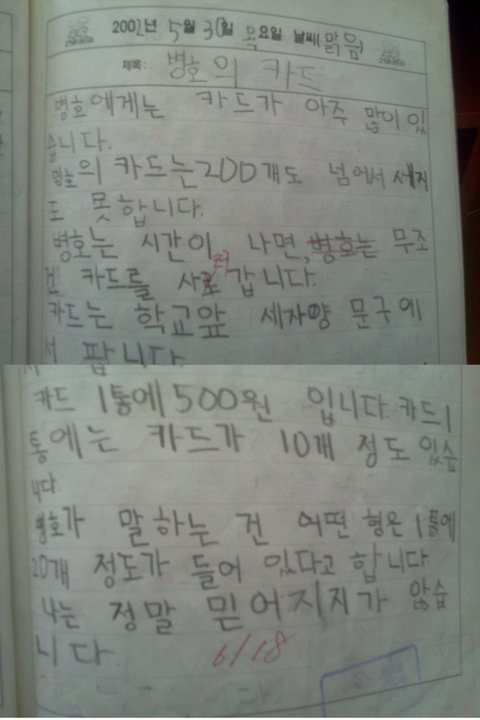 2001년 5월 31일 목요일 날씨(맑음)
제목: 병호의 카드
병호에게는 카드가 아주 많이 있
습니다.
병호의 카드는 200개도 넘어서 세지
도 못합니다.
병호는 시간이 나면, 병호는 무조
건 카드를 사러 갑니다.
카드는 학교앞 세자양 문구에
서 팝니다.
카드 1통에 500원 입니다. 카드 1
통에는 카드가 10개 정도 있습
니다.
병호가 말하는 건 어떤 형은 1통에
20개 정도가 들어 있다고 합니다
나는 정말 믿어지지가 않습
니다
6/18